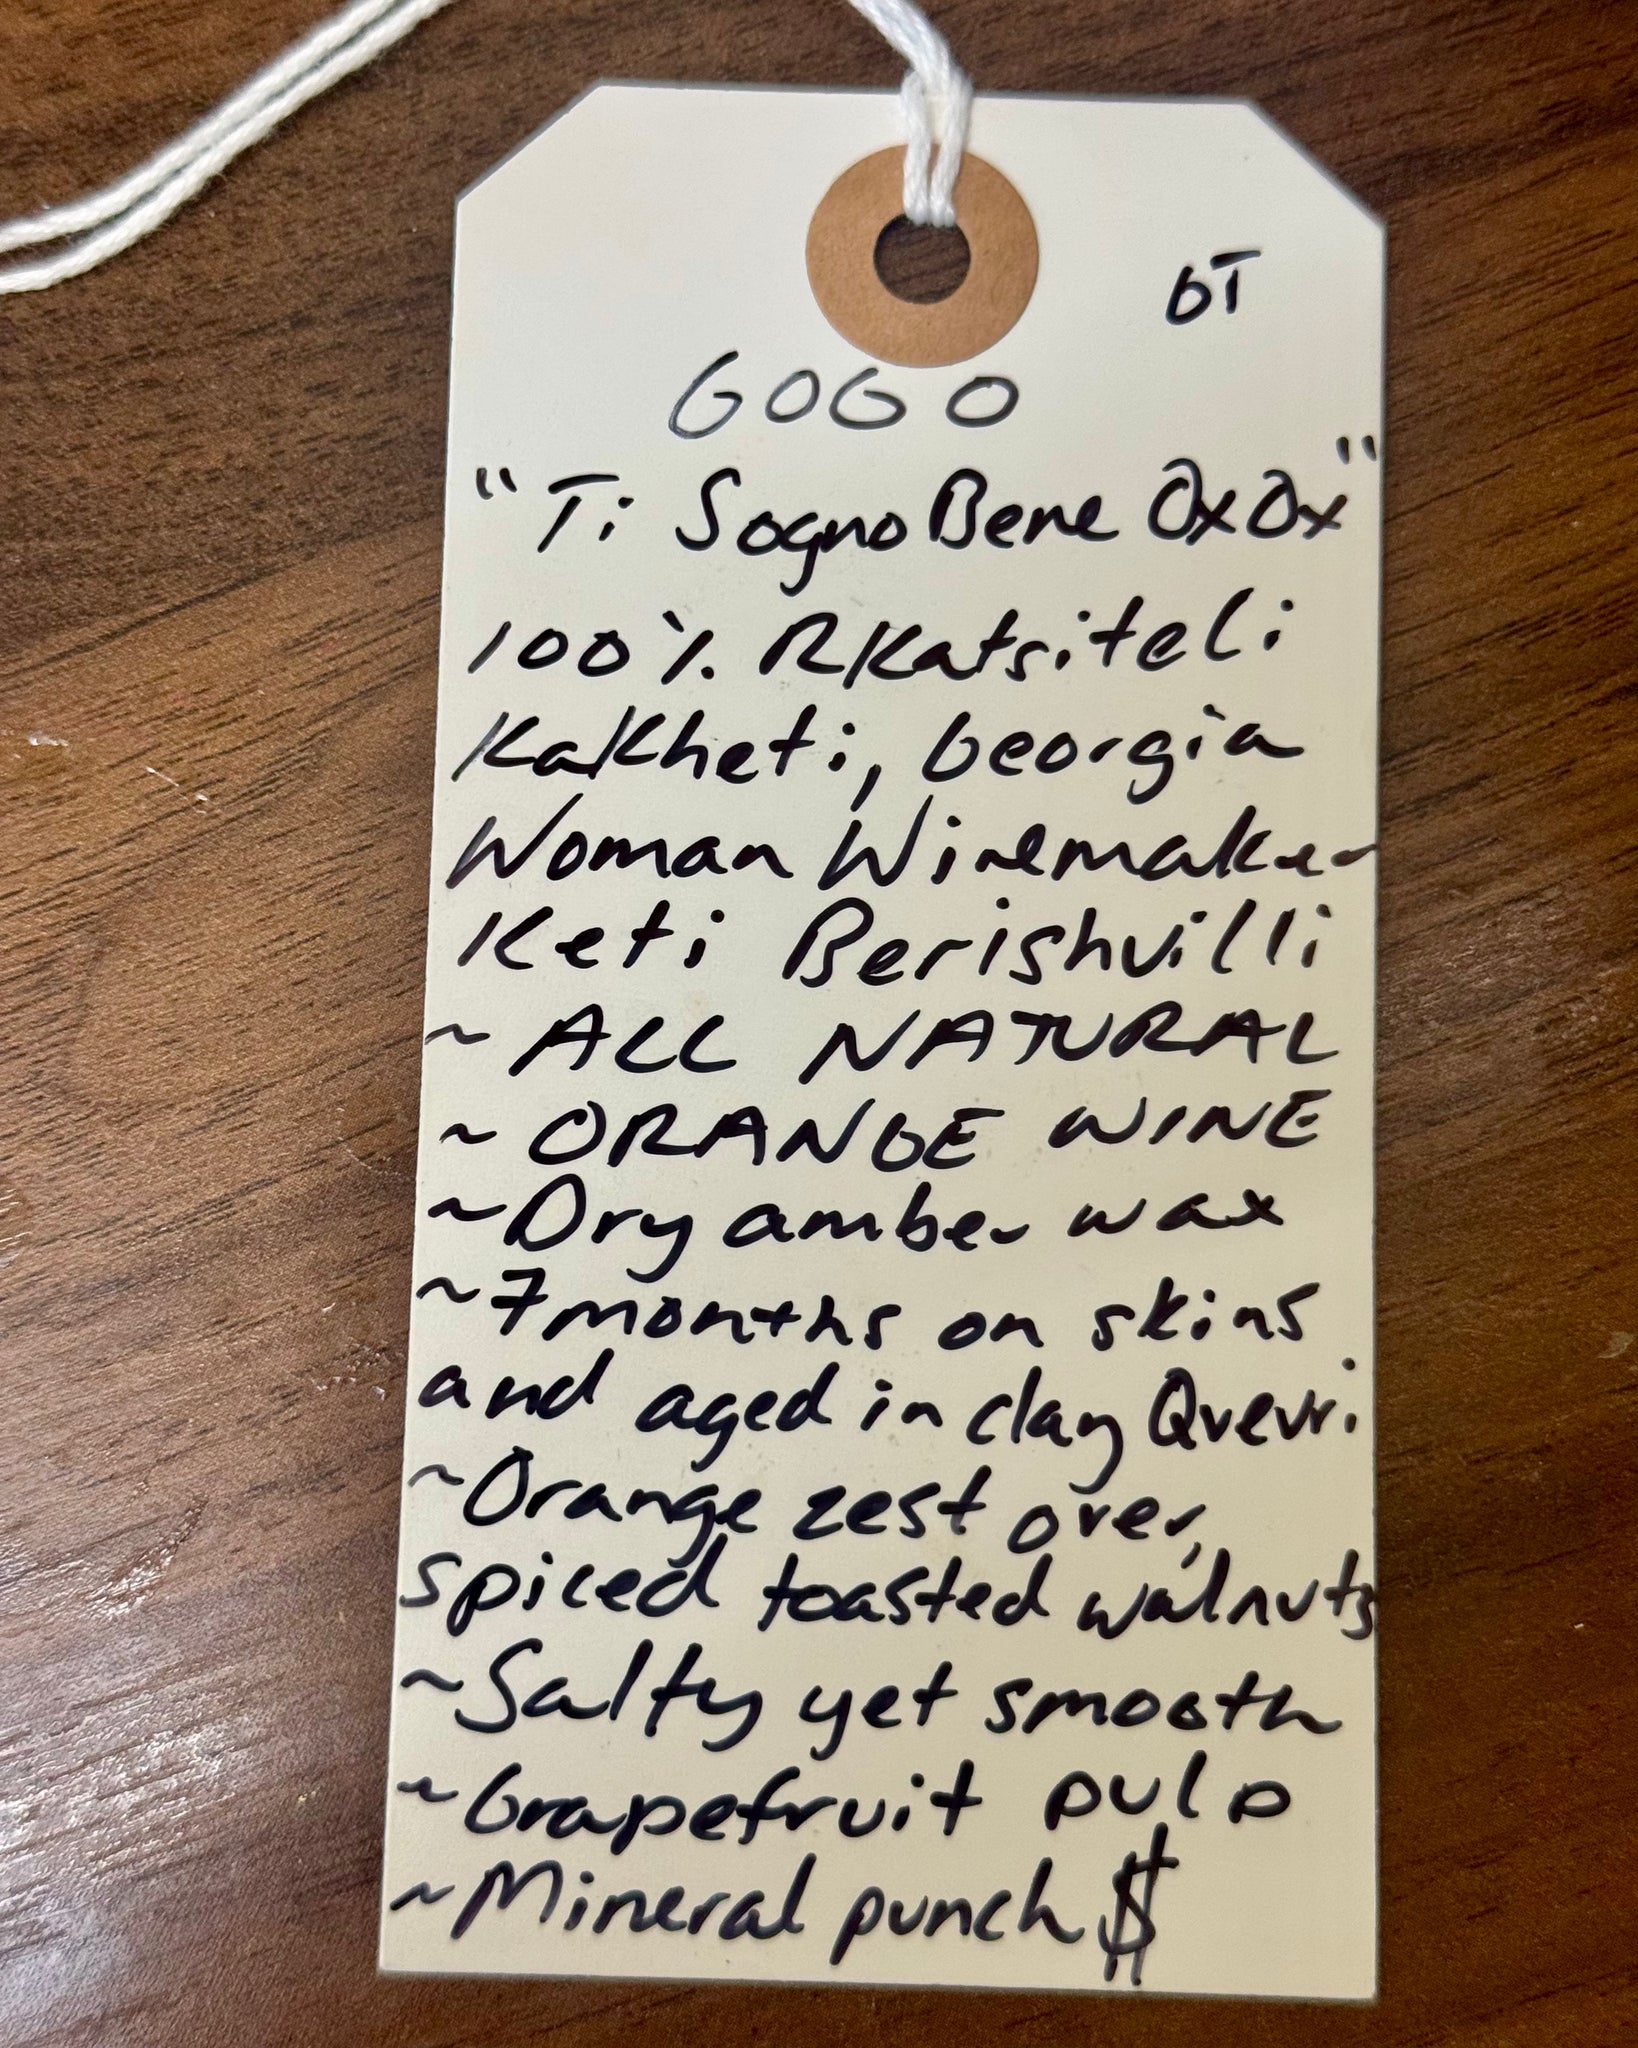 GT
GOGO
"Ti Sogno Bene OxOx"
100% Rkatsiteli
Kakheti, Georgia
Woman Winemaker
Keti Berishvilli
~ ALL NATURAL
~ ORANGE WINE
~ Dry amber wax
~ 7 months on skins
and aged in clay Qvevri.
~ Orange zest over,
spiced toasted walnuts
~ Salty yet smooth
~ Grapefruit pulp
~ Mineral punch $